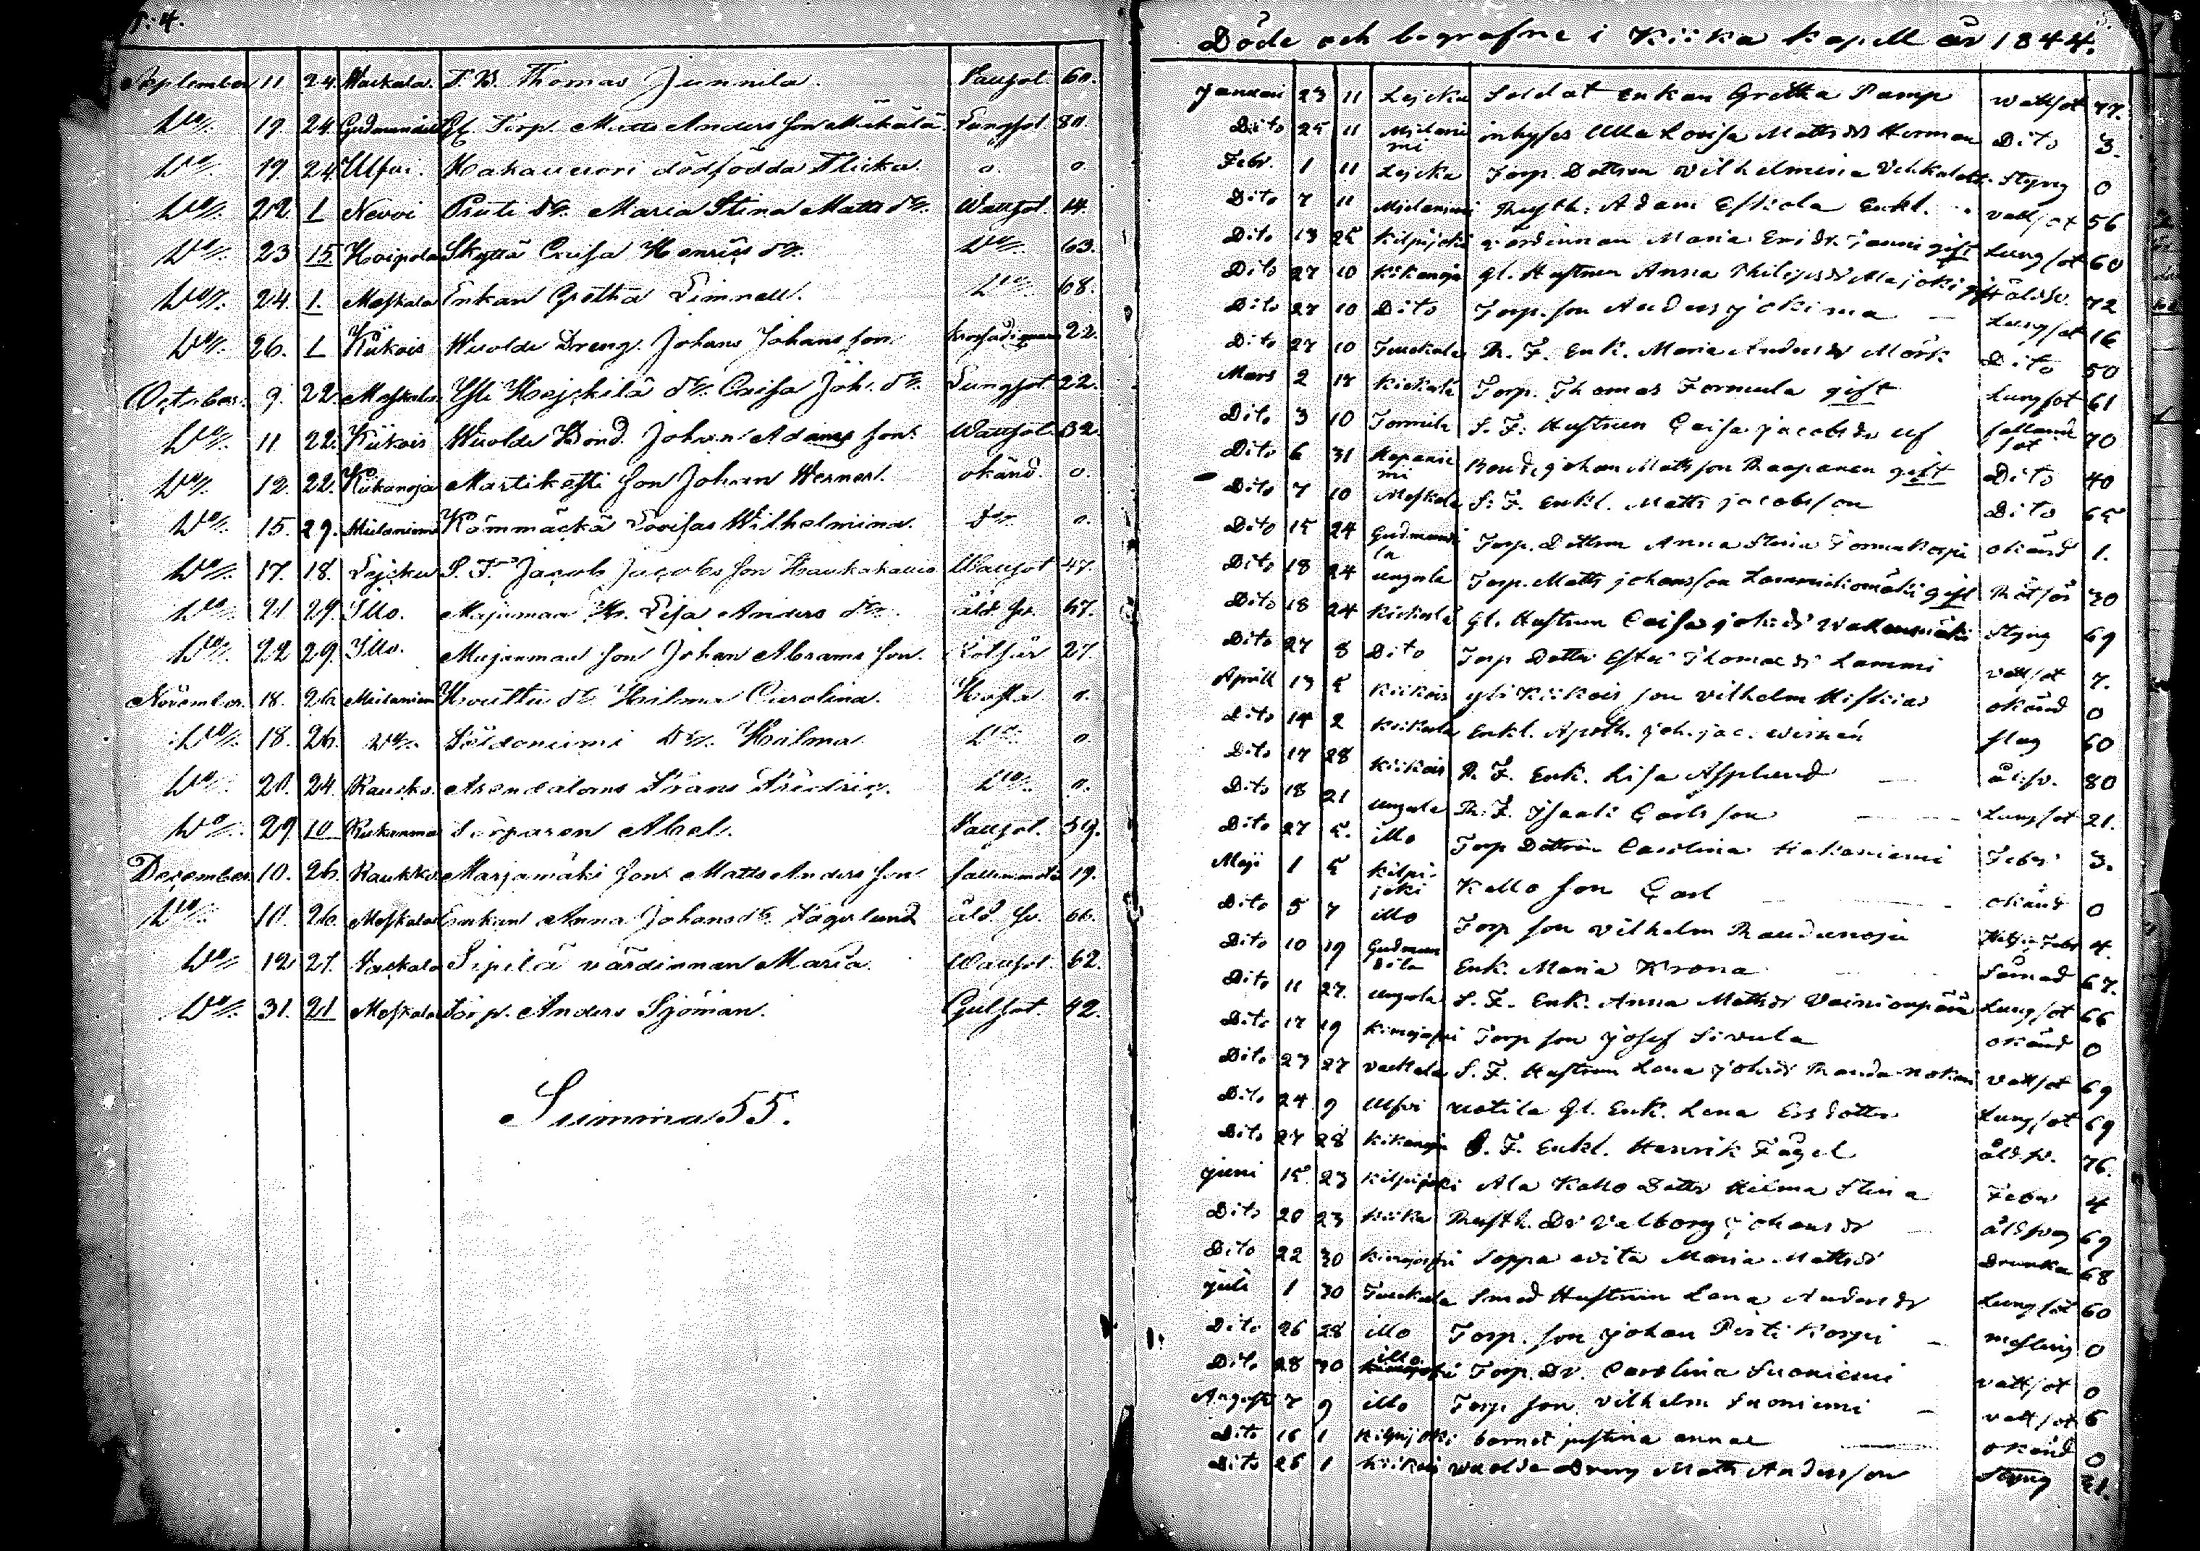 P: 4.
September 11 24. Wackala. T. B. Thomas Junnila. Lungsot 60.
Do 19 24 Gudmundila Gl. Torp. Matts Andersson Mikälä Lungsot 80.
Do 19. 24 Ulfvi. dödfödda Flicka. 0. 0.
Do 22 1 Nevoi Pruti dr. Maria Stina Matts dr. Wattsot. 14.
Do 23 15 Hoipola Skyttä Caisa Henrics dr. Do 63.
Do 24. 1. Meskala Enkan Gretha Limnell. Do 68.
Do 26. 1 Kiikois Wuolde Dreng. Johans Johansson 22.
October. 9. 22. Meskala Yli Hejckilä dr. Caisa Joh. dr. Lungsot 22.
Do 11 22. Kiikois Wuolde Bond. Johan Adamsson. Wattsot 32.
Do 12. 22. Kiikanoja Martikesti Son Johan Werner. okänd. 0.
Do 15. 29. Mielaniemi Kömmäckä Lovisas Wilhelmina. Do 0.
Do 17. 18. Lejcku S. F. Jacob Jacobsson Wattsot 47.
Do 21 29. Illo. Majanmaa H. Lisa Anders dr. åld. sv. 67.
Do 22 29. Illo. Majanmaa son Johan Abramsson. Rötfür 27.
November. 18. 26. Mielaniemi Houttu dr. Hilma Carolina. Hosta 0.
Do 18. 26. Do Dr. Hilma Do 0.
Do 20. 24. Raucko. Frans Fredric. Do 0.
Do 29. 10 Abel. Lungsot. 59.
December. 10. 26. Raukko Marjamäki Son Matts Andersson 19.
Do 10. 26. Meskala Enkan Anna Johansdr. Fägerlund åld. sv. 66.
Do 12 27. Wackala Sipilä värdinnan Maria. Wattsot. 62.
Do 31. 21 Meskala Torp. Anders Sjöman. Gulsot. 42.
Summa 55.
Döde och begrafne i Kiika kapell år 1844.
Januari 23 11 Lejcku Soldat enkan Gretha Pamp wattsot 77.
Dito 25 11 Mielaniemi inhyses Ulla Lovisa Matts dr Herman Dito 3.
Febr. 1 11 Lejcku Torp. Dottren Vilhelmina Styng 0
Dito 7 11 Mielaniemi Rusth. Adam Eskola Enkl. vattsot 56
Dito 13 25 Kilpijoki värdinnan Maria Jaani gift Lungsot 60
Dito 27 10 Kikanoja Gl. Hustrun Anna Philipsdr Alajoki gift åldsv. 72
Dito 27 10 Dito Torp. son Anders Jokima Lungsot 16
Dito 27 10 Tuckala R. F. Enk. Maria Anders dr Mörk Dito 50
Mars 2 17 Kiekala Torp. Thomas Formula gift Lungsot 61
Dito 3 10 S. F. Hustrun Caisa Jacobs dr uf fallandsot 70
Dito 6 31 Bond. Johan Mattsson Raapanen gift Dito 40
Dito 7 10 Meskala S. F. Enkl. Matts Jacobsson Dito 65
Dito 15 24 Gudmundila Torp. Dottren Anna Stina okänd 1.
Dito 18 24 ungula Torp. Matts Johansson gift Rötfür 30
Dito 18 24 Kiekala Gl. Hustrun Caisa Johsdr Styng 69
Dito 27 8 Dito Torp Dotter Ester Thomas dr Lammi vattsot 7.
Aprill 13 5 Kiikois yli Kiikois son Vilhelm Hiskias okänd 0
Dito 14 2 Kiikala Enkl. Apoth. Joh. Jac. slag 60
Dito 17 28 Kiikois R. F. Enk. Lisa Asplund ål.sv. 80
Dito 18 21 ungula R. F. Isaak Carlsson Lungsot 21.
Dito 27 5. illo Torp Dottren Carolina Hakaniemi Feber 3.
Maji 1 5 Kilpijoki Kallo son Carl okänd 0
Dito 5 7 illo Torp son Vilhelm Raudanoja 4.
Dito 10 19 Gudmundila Enk. Maria Krona 67.
Dito 11 27. ungula S. F. Enk. Anna Matts dr Vainionpää Lungsot 66
Dito 17 19 Kimajaswi Torp son Josef Sivula okänd 0
Dito 23 27 vackala S. F. Hustrun Lena Johsdr vattsot 69
Dito 24 9 Ulfvi Uotila Gl. Enk. Lena Ersdotter Lungsot 69
Dito 27 28 Kikanoja S. F. Enkl. Henrik Fågel åld.sv. 76.
Juni 15 23 Kilpijoki Ala Kallo Dotter Hilma Stina Feber 4
Dito 20 23 Kiika Rusth. Dr Valborg Johans dr åldsvag 69
Dito 22 30 Soppa Maria Matts dr Drunkn 68
Juli 1 30 Tuckala Smed Hustrun Lena Anders dr Lungsot 60
Dito 26 28 illo Torp. son Johan Pirti Korpi mesling 0
Dito 28 30 illo Torp. Dr. Carolina Suoniemi vattsot 0
Augusti 7 9 illo Torp son Vilhelm Suoniemi vattsot 6
Dito 16 1 Kilpijoki barnet justina annae okänd 0
Dito 26 1 Kiikois Wuolde Dreng Matts Andersson Styng 21.